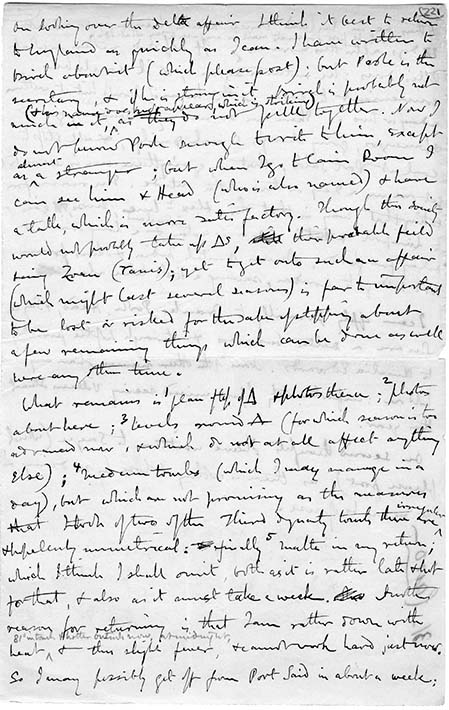 221
On looking over the Delta affair I think it best to return
to England as quickly as I can. I have written to
Birch about it (which please post); but Poole is the
secretary, & if he is strong in it Birch is probably not
(& his name does not appear, which is striking)
much in it, as they do not pull together. Now I
do not know Poole enough to write to him, except
almost
as a stranger; but when I go to Coin Room I
can see him & Head (who is also named) & have
a talk, which is more satisfactory. Though this Society
would not probably take up Δs, their probable field
being Zoan (Tanis); yet to get onto such an affair
(which might last several seasons) is far too important
to be lost or risked for the sake of stopping about
a few remaining things which can be done as well
here any other time.
What remains is ¹plan of Δ & photos thereon; ²photos
about here; ³levels round Δ (for which season is too
advanced now, & which do not at all affect anything
else); ⁴Medum tombs (which I may manage in a
day), but which are not promising as the measures
that I took of two of the Third dynasty tombs there are irregular
& hopelessly unmetrical: & finally ⁵Malta in my return,
which I think I shall omit, both as it is rather late & hot
for that, & also as it must take a week. Another
reason for returning is that I am rather down with
81° in tomb & hotter outside now, past midnight
heat, & this slight fever, & cannot work hard just now.
So I may possibly get off from Port Said in about a week;